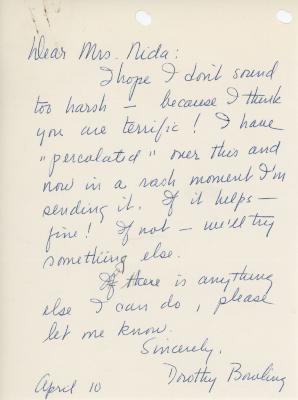 Dear Mrs. Nida:
I hope I don't sound
too harsh — because I think
you are terrific! I have
"percolated" over this and
now in a rash moment I'm
sending it. If it helps —
fine! If not — we'll try
something else.
If there is anything
else I can do, please
let me know.
Sincerely,
Dorothy Bowling
April 10